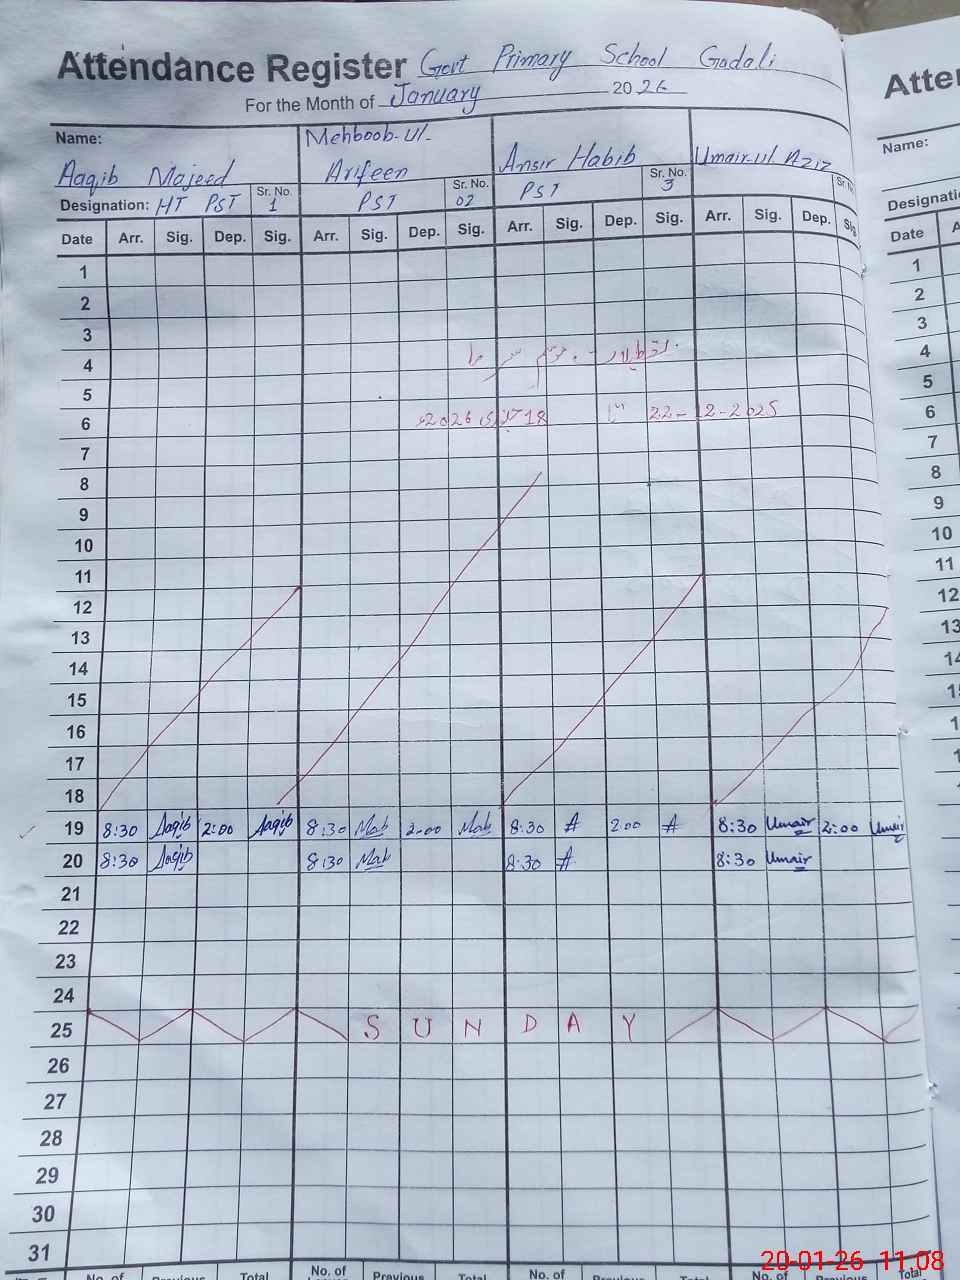 Attendance Register Govt Primary School Gadali
For the Month of January 2026
Name: Aaqib Majeed Mehboob-ul-Arifeen Ansir Habib Umair-ul Aziz
Designation: HT PST Sr. No. 1 PST Sr. No. 02 PST Sr. No. 3 Sr. N
Date Arr. Sig. Dep. Sig. Arr. Sig. Dep. Sig. Arr. Sig. Dep. Sig. Arr. Sig. Dep. Sig
1
2
3
4
5
6 22-12-2025
7
8
9
10
11
12
13
14
15
16
17
18
19 8:30 Aaqib 2:00 Aaqib 8:30 Mab 2:00 Mab 8:30 A 2:00 A 8:30 Umair 2:00 Umair
20 8:30 Aaqib 8:30 Mab 8:30 A 8:30 Umair
21
22
23
24
25 SUNDAY
26
27
28
29
30
31
No. of Previous Total No. of Previous Total No. of Previous Total No. of Previous
Atten
Name:
Designati
Date A
1
2
3
4
5
6
7
8
9
10
11
12
13
14
20-01-26 11:08